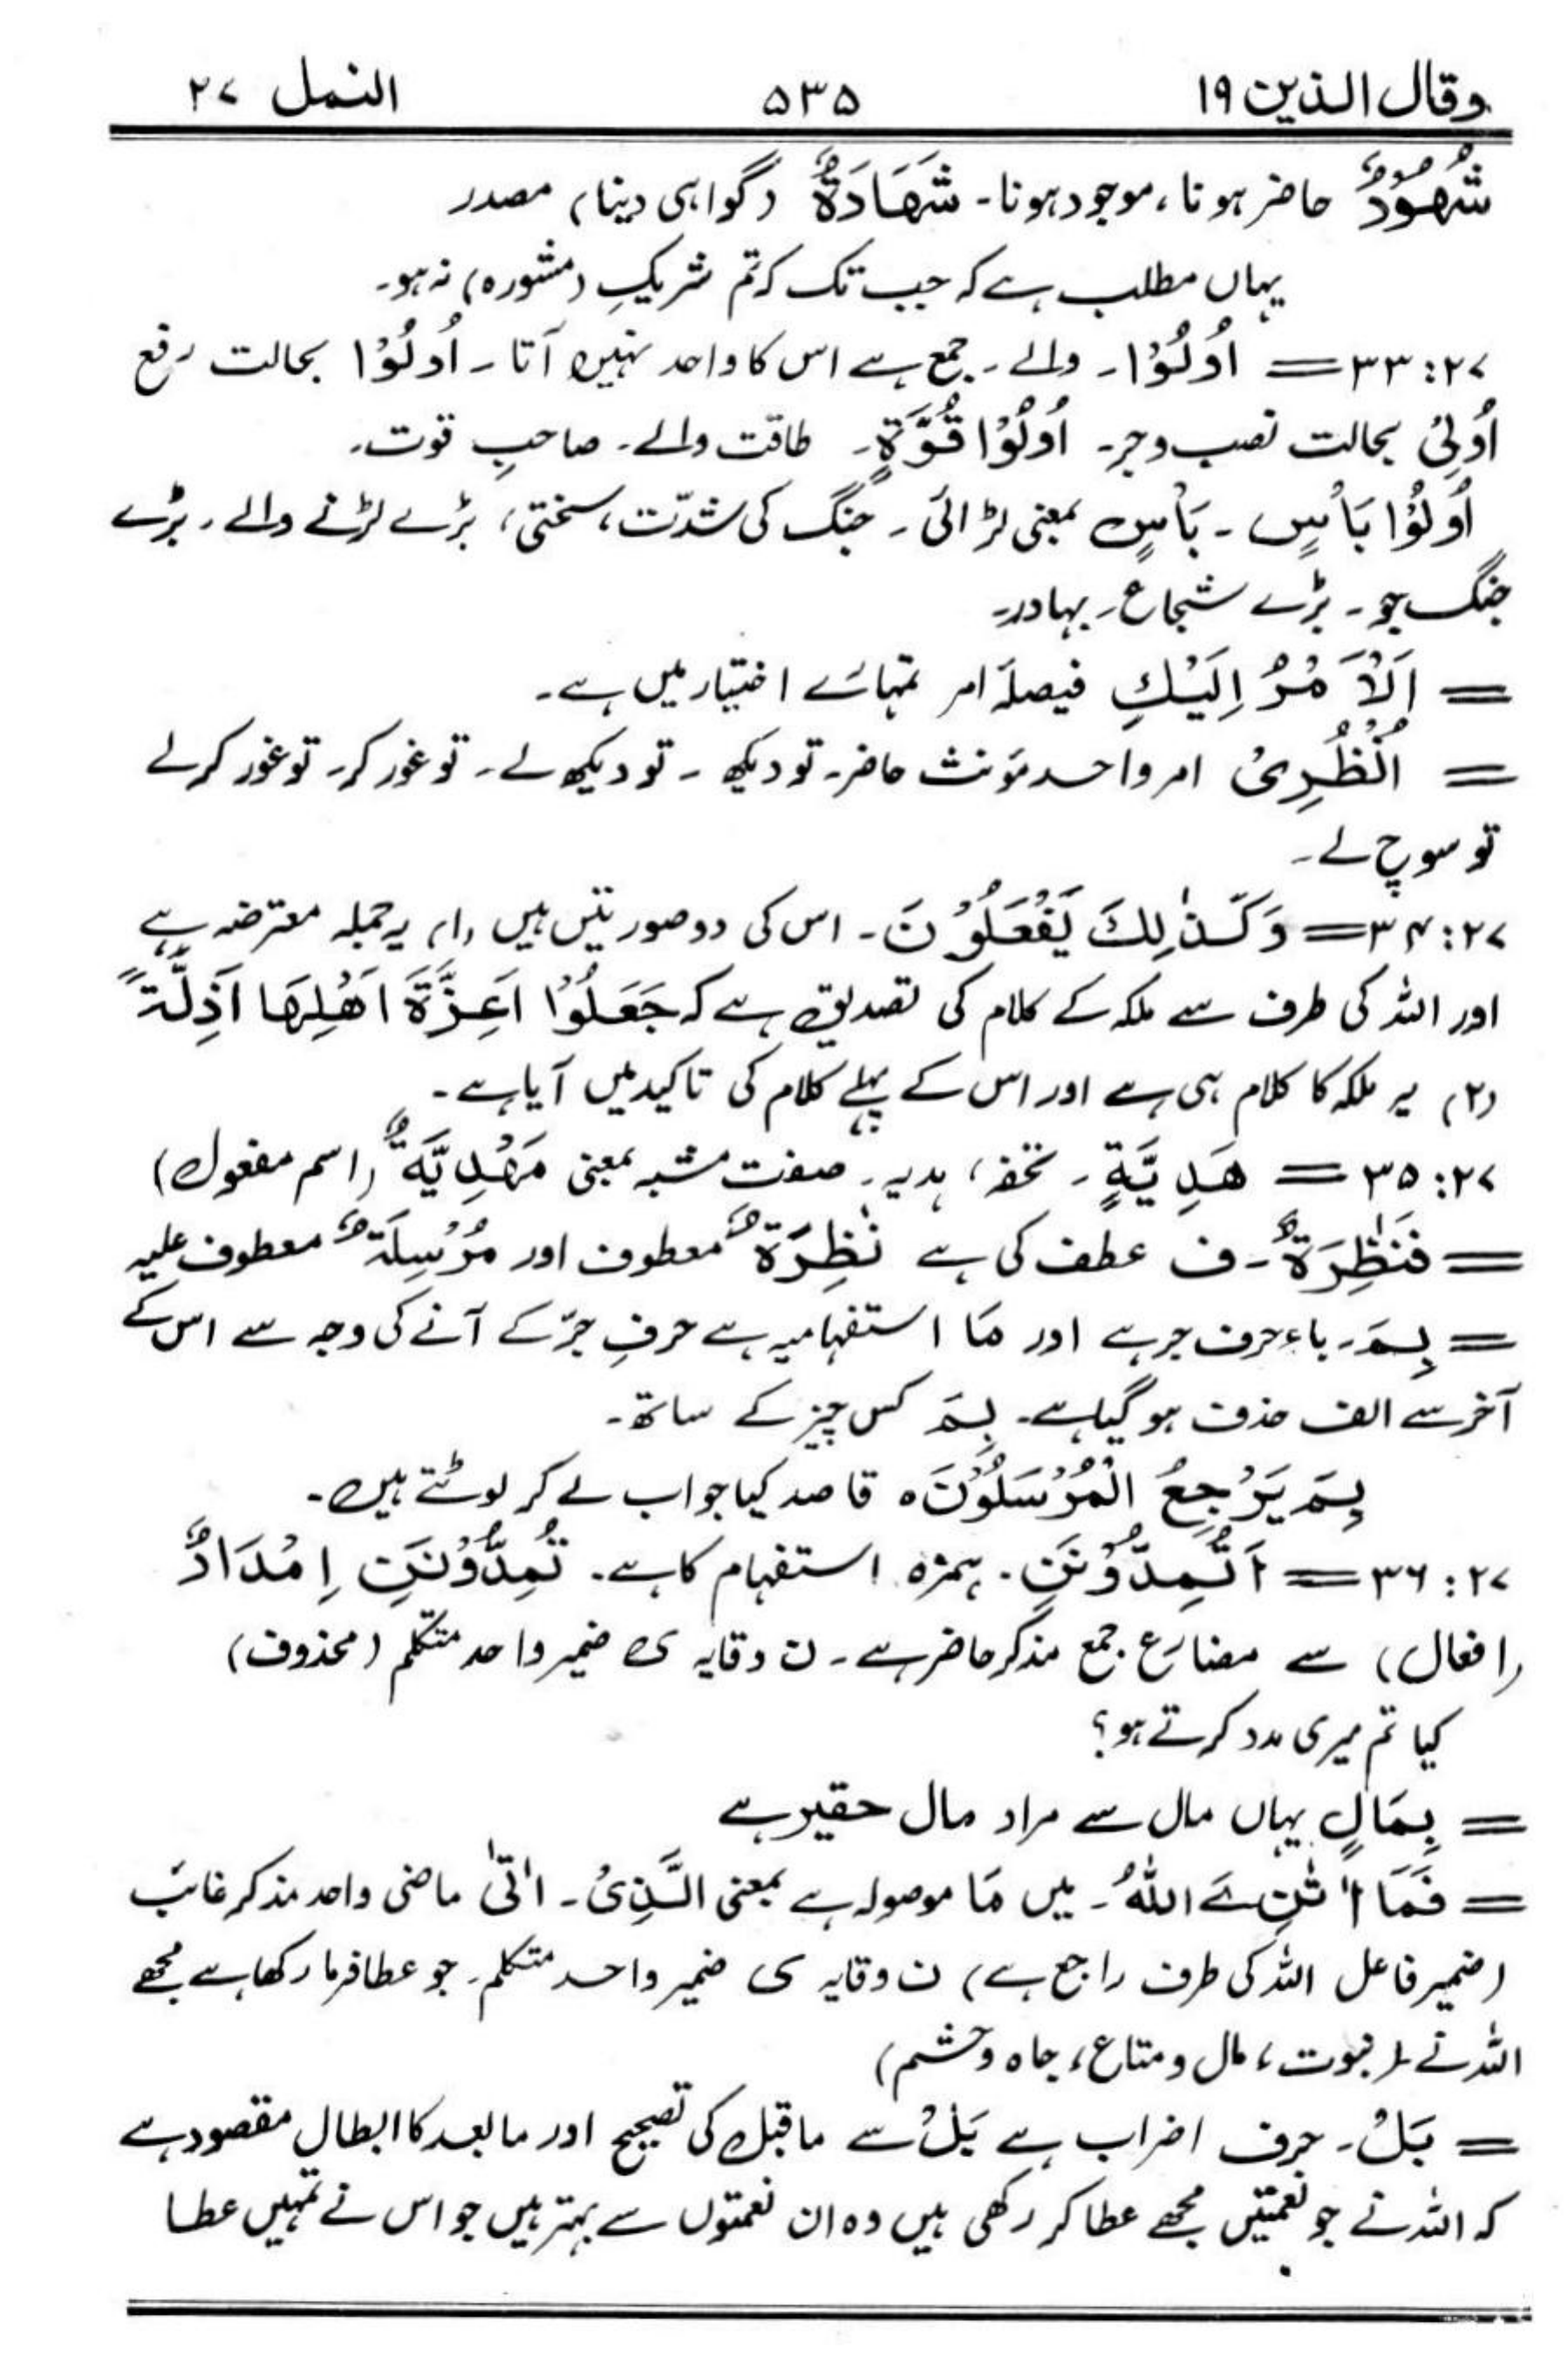 وقال الذین ۱۹ ۵۳۵ النمل ۲۷
شُهُوْدٌ حاضر ہونا، موجود ہونا۔ شَهَادَةٌ (گواہی دینا) مصدر
یہاں مطلب ہے کہ جب تک کہ تم شریکِ (مشورہ) نہ ہو۔
۲۷:۳۳ = اُولُوْا۔ والے۔ جمع ہے اس کا واحد نہیں آتا۔ اُولُوْا بحالت رفع
اُولِیْ بحالت نصب وجر۔ اُولُوْا قُوَّةٍ۔ طاقت والے۔ صاحبِ قوت۔
اُولُوْا بَاْسٍ۔ بَاْسٍ بمعنی لڑائی۔ جنگ کی شدّت، سختی، بڑے لڑنے والے۔ بڑے
جنگ جو۔ بڑے شجاع۔ بہادر۔
= اَلْاَمْرُ اِلَیْكِ فیصلۂ امر تمہارے اختیار میں ہے۔
= اُنْظُرِیْ امر واحد مؤنث حاضر۔ تو دیکھ۔ تو دیکھ لے۔ تو غور کر۔ تو غور کرلے
تو سوچ لے۔
۲۷:۳۴ = وَكَذٰلِكَ یَفْعَلُوْنَ۔ اس کی دو صورتیں ہیں (۱) یہ جملہ معترضہ ہے
اور اللہ کی طرف سے ملکہ کے کلام کی تصدیق ہے کہ جَعَلُوْا اَعِزَّةَ اَهْلِهَا اَذِلَّةً
(۲) یہ ملکہ کا کلام ہی ہے اور اس کے پہلے کلام کی تاکید میں آیا ہے۔
۲۷:۳۵ = هَدِیَّةٍ۔ تحفہ، ہدیہ۔ صفت مشبہ بمعنی مَهْدِیَّةٌ (اسم مفعول)
= فَنٰظِرَةٌ۔ ف عطف کی ہے نٰظِرَةٌ معطوف اور مُرْسِلَةٌ معطوف علیہ
= بِمَ۔ باء حرف جر ہے اور مَا استفہامیہ ہے حرفِ جرّ کے آنے کی وجہ سے اس کے
آخر سے الف حذف ہو گیا ہے۔ بِمَ کس چیز کے ساتھ۔
بِمَ یَرْجِعُ الْمُرْسَلُوْنَ ہ قاصد کیا جواب لے کر لوٹتے ہیں۔
۲۷:۳۶ = اَتُمِدُّوْنَنِ۔ ہمزہ استفہام کا ہے۔ تُمِدُّوْنَنِ اِمْدَادٌ
(افعال) سے مضارع جمع مذکر حاضر ہے۔ ن وقایہ ی ضمیر واحد متکلم (محذوف)
کیا تم میری مدد کرتے ہو؟
= بِمَالٍ یہاں مال سے مراد مال حقیر ہے
= فَمَا اٰتٰنِ ےَ اللّٰهُ۔ میں مَا موصولہ ہے بمعنی الَّذِیْ۔ اٰتٰی ماضی واحد مذکر غائب
(ضمیر فاعل اللہ کی طرف راجع ہے) ن وقایہ ی ضمیر واحد متکلم۔ جو عطا فرما رکھا ہے مجھے
اللہ نے (نبوت، مال و متاع، جاہ و حشم)
= بَلْ۔ حرف اضراب ہے بَلْ سے ماقبل کی تصحیح اور مابعد کا ابطال مقصود ہے
کہ اللہ نے جو نعمتیں مجھے عطا کر رکھی ہیں وہ ان نعمتوں سے بہتر ہیں جو اس نے تمہیں عطا